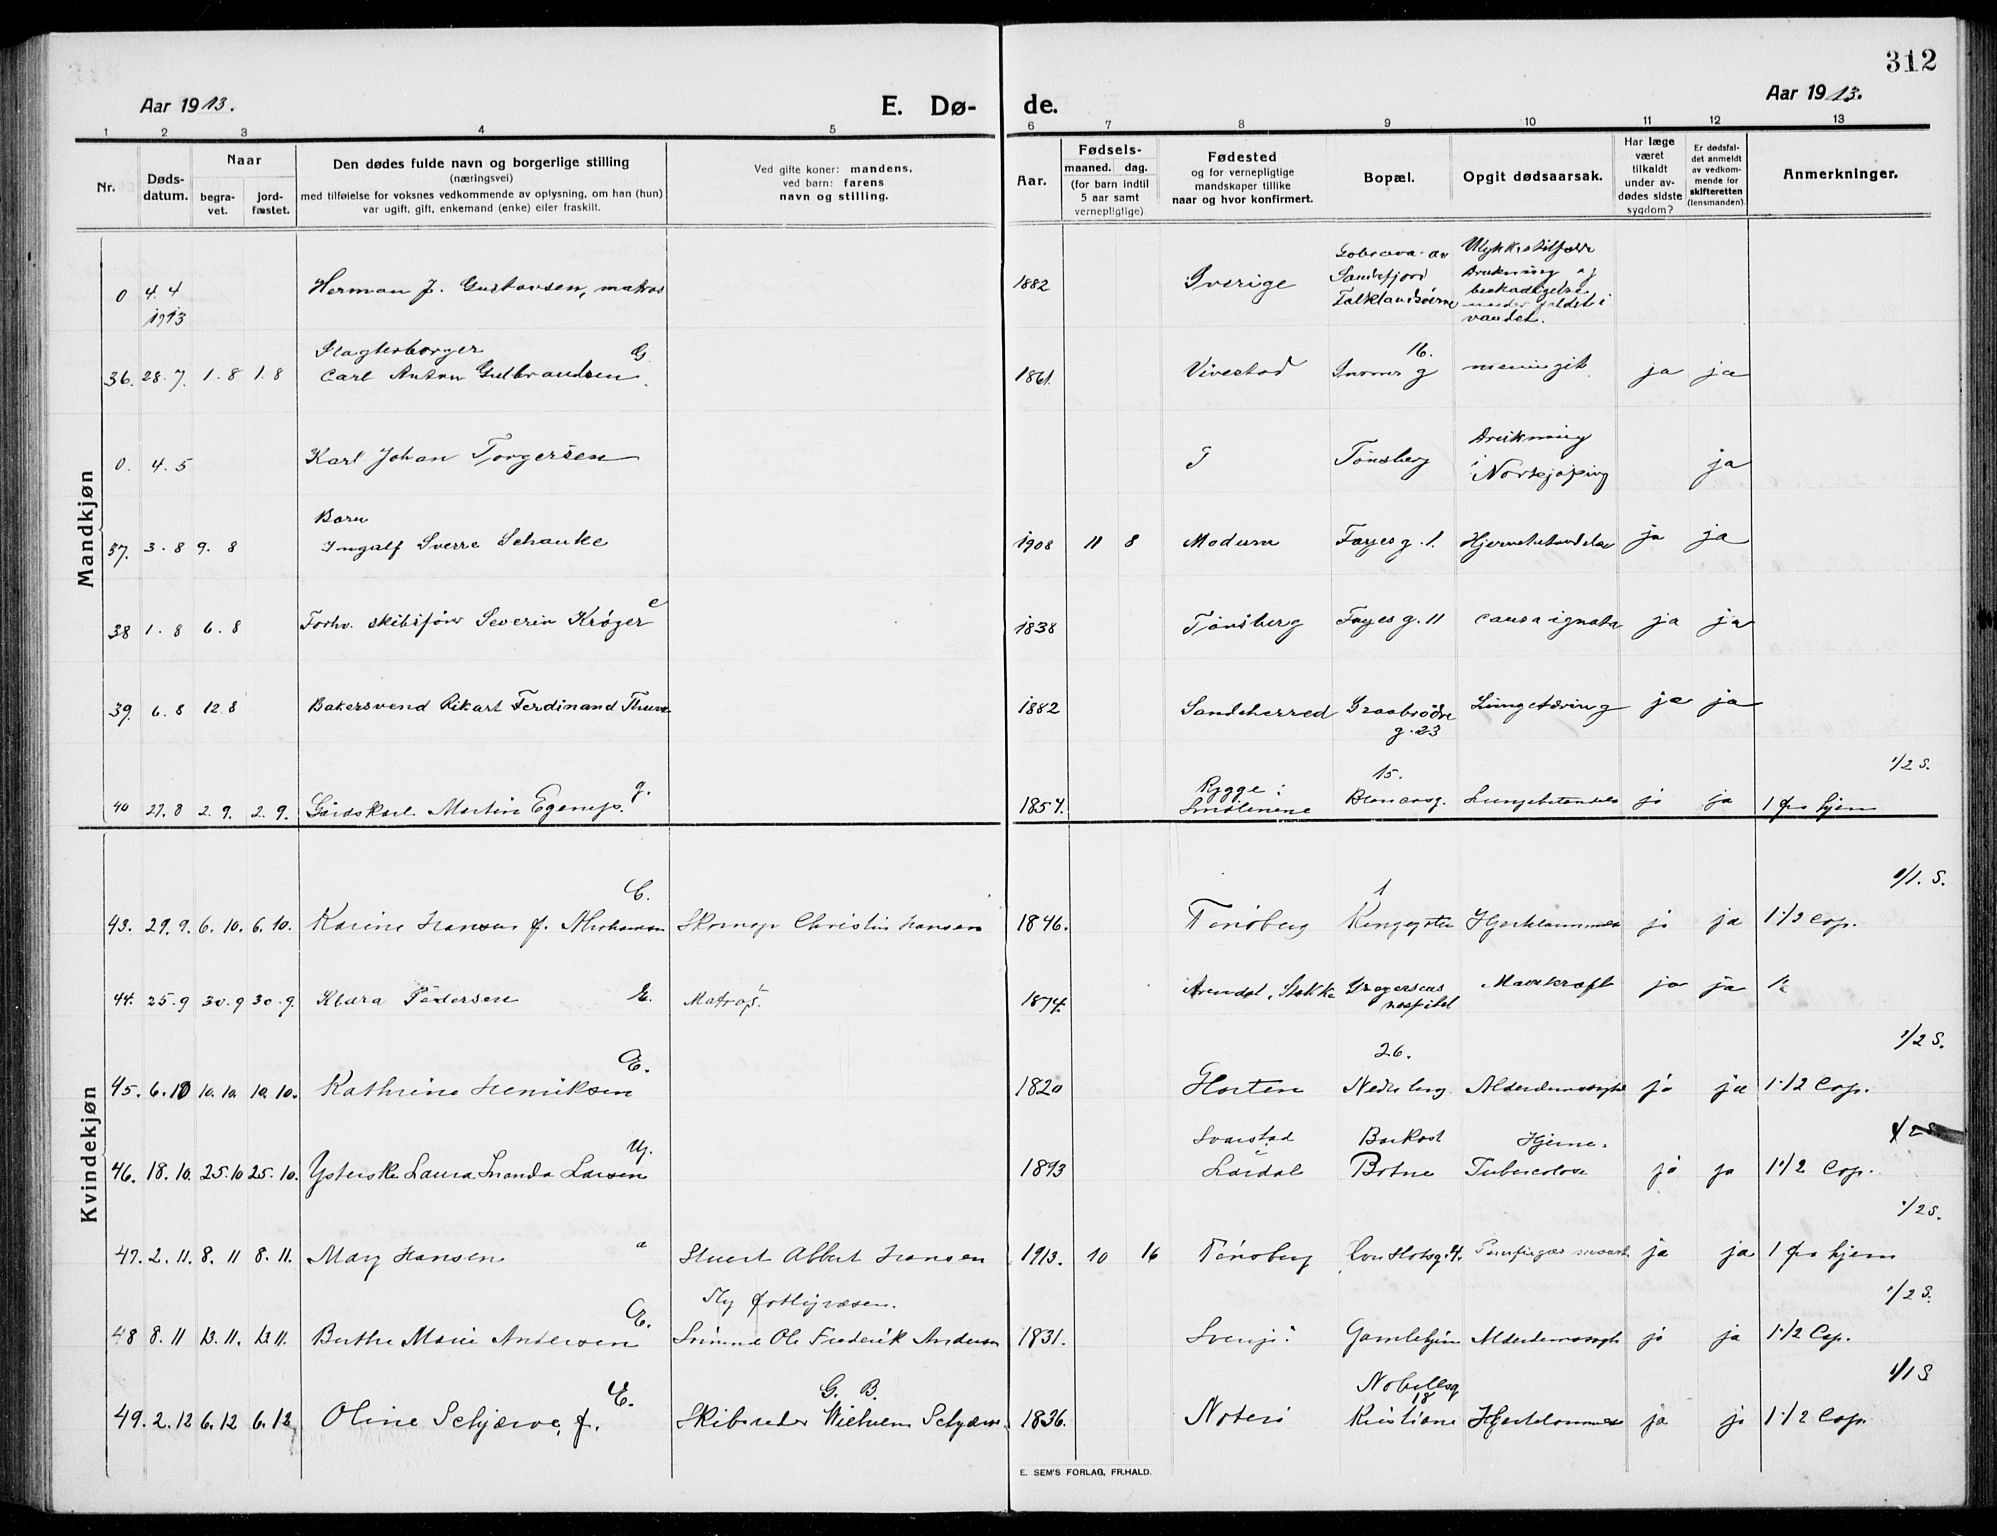 312
Aar 1913.
E. Dø-
de.
Aar 1913.
1 2 3 4 5 6 7 8 9 10 11 12 13
Nr.
Døds-
datum.
Naar
begra-
vet.
jord-
fæstet.
Den dødes fulde navn og borgerlige stilling
(næringsvei)
med tilføielse for voksnes vedkommende av oplysning, om han (hun)
var ugift, gift, enkemand (enke) eller fraskilt.
Ved gifte koner: mandens,
ved barn: farens
navn og stilling.
Aar.
Fødsels-
maaned. dag.
(for barn indtil
5 aar samt
vernepligtige)
Fødested
og for vernepligtige
mandskaper tillike
naar og hvor konfirmert.
Bopæl.
Opgit dødsaarsak.
Har læge
været
tilkaldt
under av-
dødes sidste
sygdom?
Er dødsfal-
det anmeldt
av vedkom-
mende for
skifteretten
(lensmanden).
Anmerkninger.
Mandkjøn
0 4. 4 1913 Herman J. Gustavsen, matros 1882 Sverige Sandefjord Falklandsøerne Ulykkestilfælde Drukning og beskadigelse under faldet i vandet.
36. 28. 7. 1. 8 1. 8 Slagterborger Carl Anton Gulbrandsen G. 1861. Vivestad 16. g meningit ja ja
0. 4. 5 Karl Johan Torgersen T Tønsberg Drukning i Norrkjøping ja
37. 3. 8 9. 8 Barn Ingalf Sverre Schanke 1908 11 8 Modum Fayesg. 1. Hjernebetændelse ja ja
38 1. 8 6. 8 Forhv. skibsfører Severin Krøger e 1838 Tønsberg Fayesg. 11 causa ignota ja ja
39. 6. 8 12. 8 Bakersvend Rikart Ferdinand Thune 1882 Sandeherred Graabrødre g. 23 Lungetæring ja ja
40 27. 8 2. 9. 2. 9. Gårdskarl Martin g. 1857. Rygge i Smålenene 15. Lungebetændelse ja ja 1 fra hjem 1/2 S.
Kvindekjøn
43. 29. 9. 6. 10. 6. 10. Karine Hansen f. Abrahamsen E. Skomager Christian Hansen 1846. Tønsberg 1 Hjertelammelse ja ja 1 1/2 Cap. 1/1. S.
44. 25. 9 30. 9 30. 9. Klara Pedersen E. Matros. 1874. Arendal, Stokke Gregersens hospital Mavekræft ja ja 1/2
45. 6. 10 10. 10. 10. 10. Kathrine Henriksen E. 1820 Horten 26. Alderdomssvaghet ja ja 1 1/2 Cap. 1/2 S.
46. 18. 10. 25. 10 25. 10. Laura Larsen Ug. 1893 Svarstad Lardal Botne Hjerne. Tuberculose ja ja 1 1/2 Cap. 1/2 S.
47. 2. 11. 8. 11 8. 11. Mary Hansen Stuert Albert Hansen 1913. 10 16 Tønsberg 4. ja ja 1 fra hjem 1/2 S.
48 8. 11 13. 11. 13. 11. Berthe Marie Andersen E. Ole Frederik Andersen 1831. Sverige Gamlehjem Alderdomssvaghet ja ja 1 1/2 Cap. 1/2 S.
49. 2. 12 6. 12 6. 12 Oline Schjærve, f. E. G. B. Skibsreder Wilhelm Schjærve 1836. Nøterø 18 Hjertelammelse ja ja 1 1/2 Cap. 1/1 S
E. SEM'S FORLAG, FR.HALD.